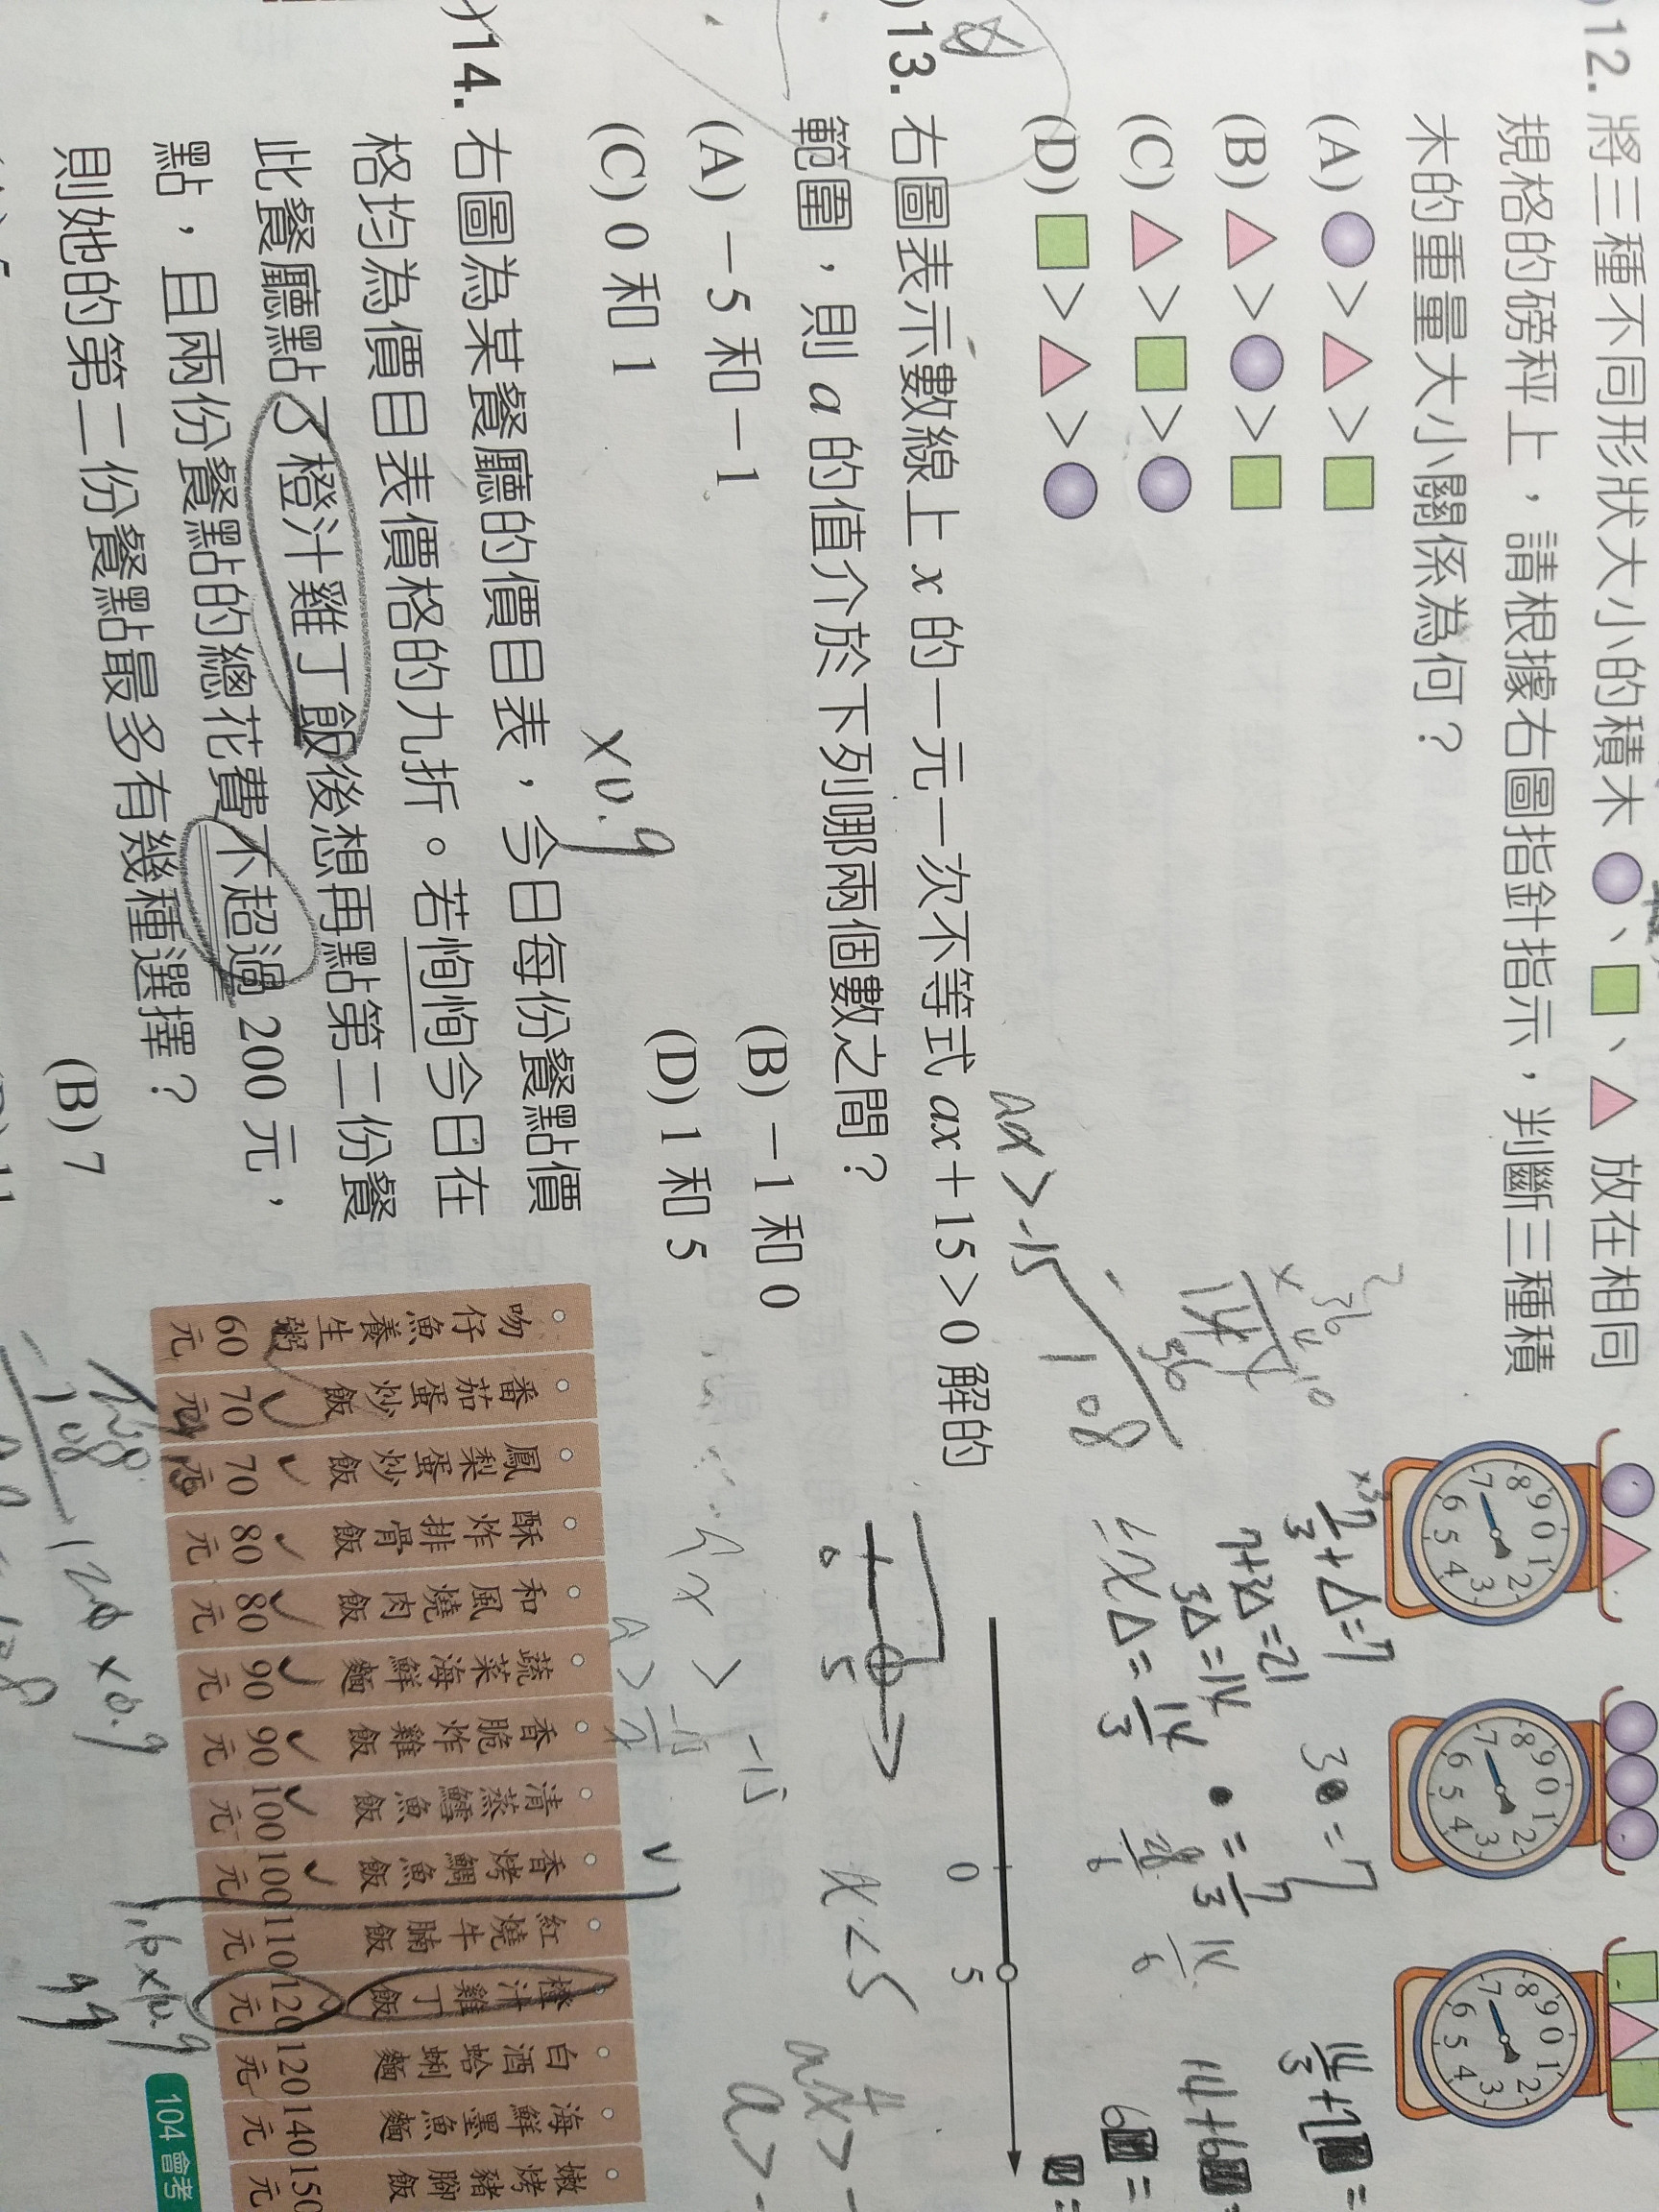 )12. 將三種不同形狀大小的積木 、 、 放在相同
規格的磅秤上，請根據右圖指針指示，判斷三種積
木的重量大小關係為何？
(A) > >
(B) > >
(C) > >
(D) > >
9 0 1 2 3 4 5 6 7 8
9 0 1 2 3 4 5 6 7 8
9 0 1 2 3 4 5 6 7 8
7/3+△=7
7+3△=21
3△=14
△=14/3
3●=7
●=7/3
)13. 右圖表示數線上 x 的一元一次不等式 ax＋15＞0 解的
範圍，則 a 的值介於下列哪兩個數之間？
(A) －5 和 －1
(B) －1 和 0
(C) 0 和 1
(D) 1 和 5
0 5
ax>-15
108
0 5
x<5
)14. 右圖為某餐廳的價目表，今日每份餐點價
格均為價目表價格的九折。若恂恂今日在
此餐廳點了橙汁雞丁飯後想再點第二份餐
點，且兩份餐點的總花費不超過 200 元，
則她的第二份餐點最多有幾種選擇？
(B) 7
×0.9
吻仔魚養生粥 60元
番茄蛋炒飯 70元
鳳梨蛋炒飯 70元
酥炸排骨飯 80元
和風燒肉飯 80元
蔬菜海鮮麵 90元
香脆炸雞飯 90元
清蒸鱈魚飯 100元
香烤鯛魚飯 100元
紅燒牛腩飯 110元
橙汁雞丁飯 120元
白酒蛤蜊麵 120元
海鮮墨魚麵 140元
嫩烤豬腳飯 150元
120×0.9
104 會考